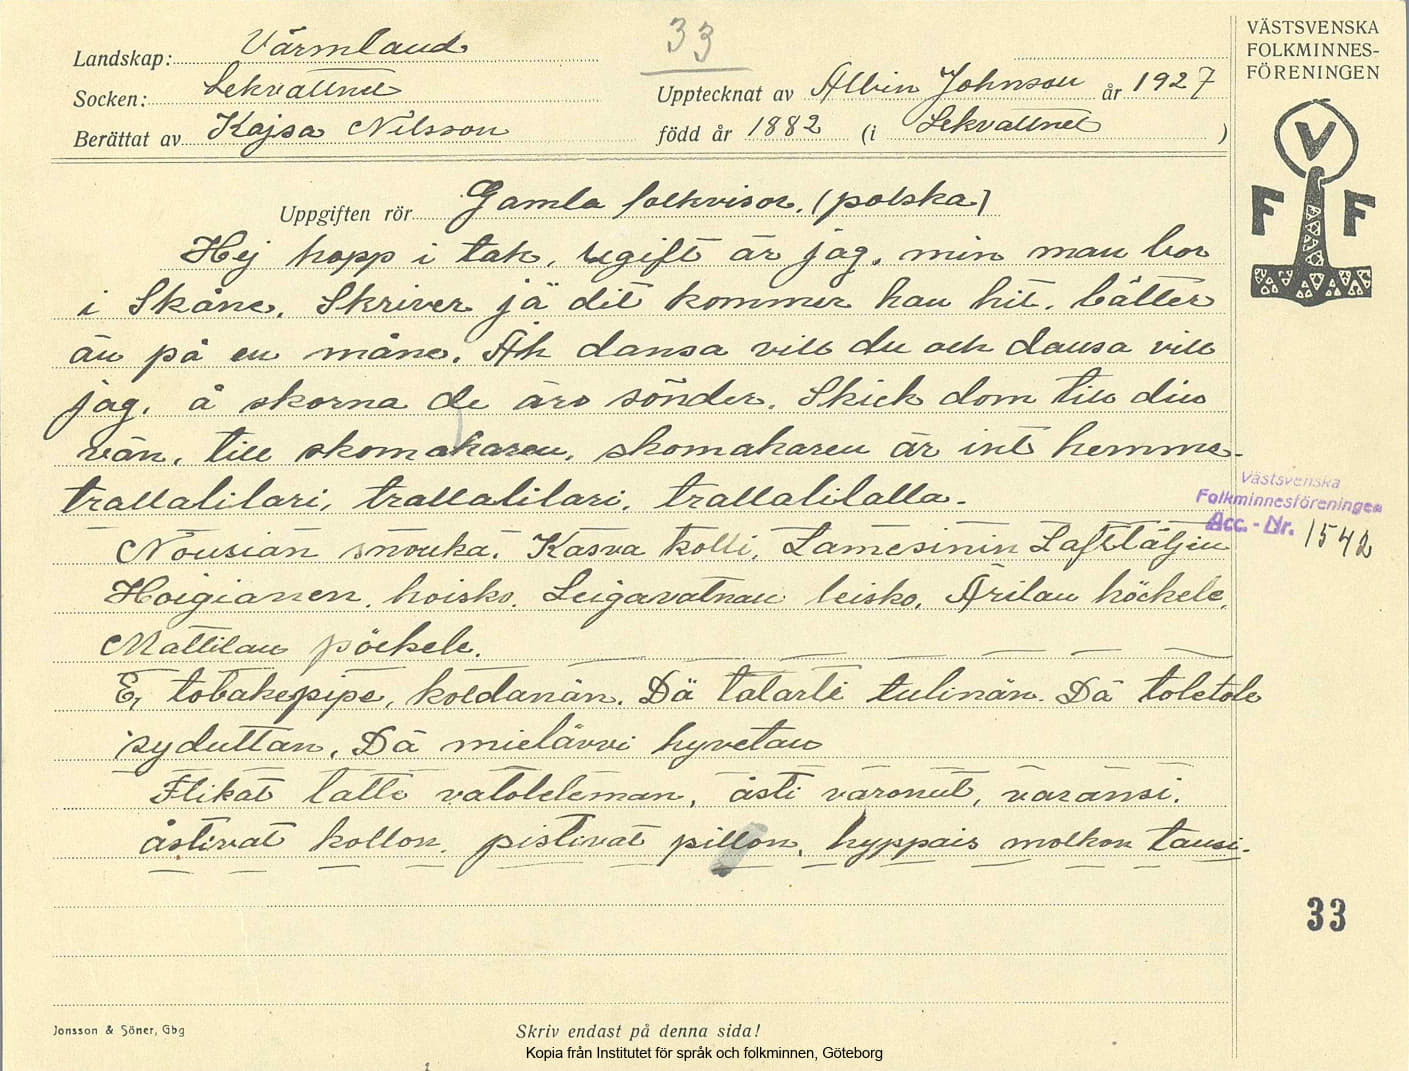 33
VÄSTSVENSKA
FOLKMINNES-
FÖRENINGEN
V
F F
Landskap: Värmland
Socken: Lekvattnet
Upptecknat av Albin Johnson år 1927
Berättat av Kajsa Nilsson
född år 1882 (i Lekvattnet )
Uppgiften rör Gamla folkvisor. (polska)
Hej hopp i tak, ugift är jag, min man bor
i Skåne. Skriver jä dit kommer han hit, bätter
än på en måne. Åk dansa vill du och dansa vill
jag, å skorna de äro sönder. Skick dom till din
vän, till skomakaren, skomakaren är int hemme-
trallalilari, trallalilari, trallalilalla.
Nousian snouka. Kasva kolli, Lamesinin Laftläljin
Hoigianen, hoisko. Leigavatnan leisko. Ärilan höckele,
Mattilan pöckele.
E, tobakspipe, koldanän. Dä talarli tulinän. Dä toletole
syduttan. Dä mielävvi hyvetan
Flikat latti vatoleleman, åsti varonut, varansi.
åstivat kollon, pistivat pillon, hyppais molkon tansi.
Västsvenska
Folkminnesföreningen
Acc. - Nr. 1542
33
Jonsson & Söner, Gbg
Skriv endast på denna sida!
Kopia från Institutet för språk och folkminnen, Göteborg